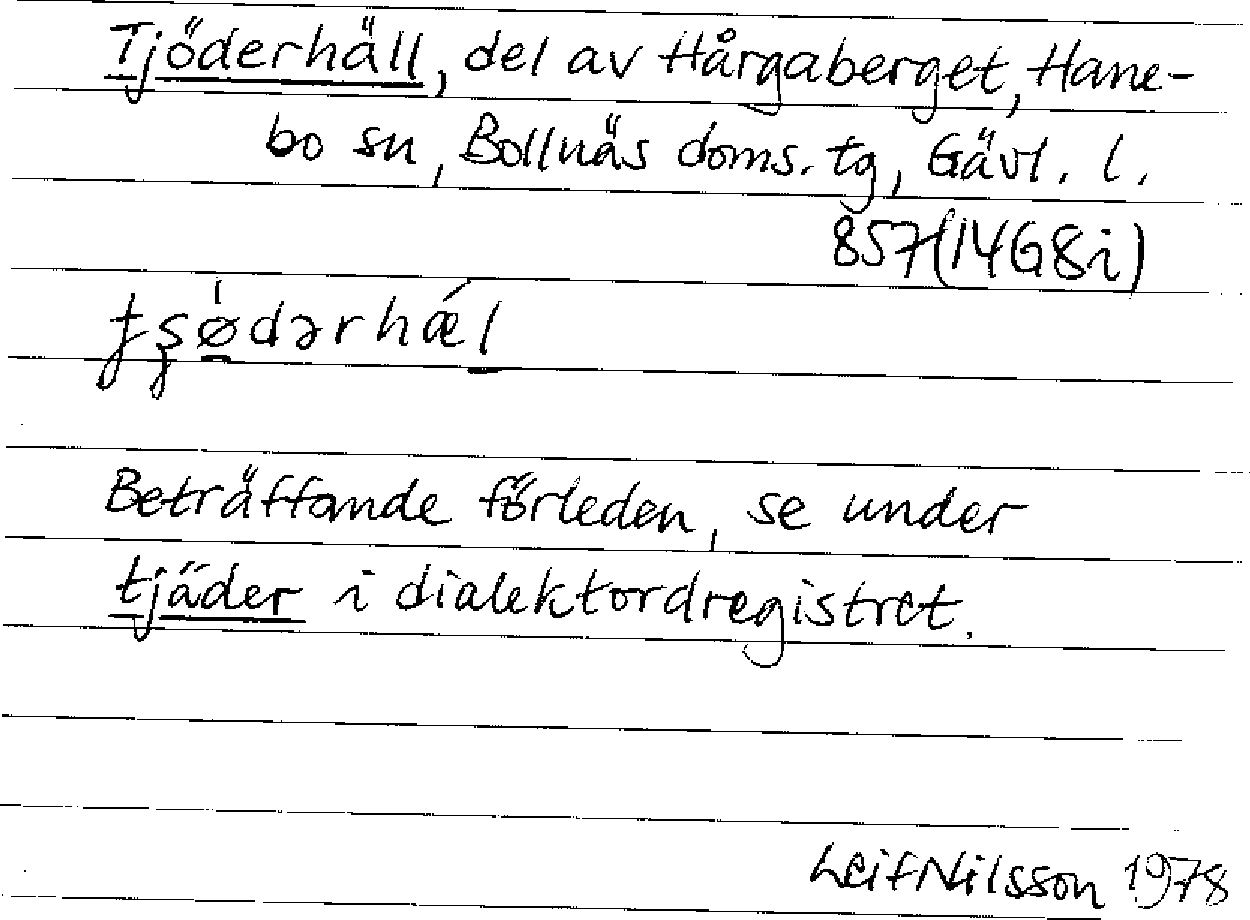 Tjöderhäll, del av Hårgaberget, Hane-
bo sn, Bollnäs doms. tg, Gävl. l.
857(14G8i)
Beträffande förleden, se under
tjäder i dialektordregistret.
Leif Nilsson 1978